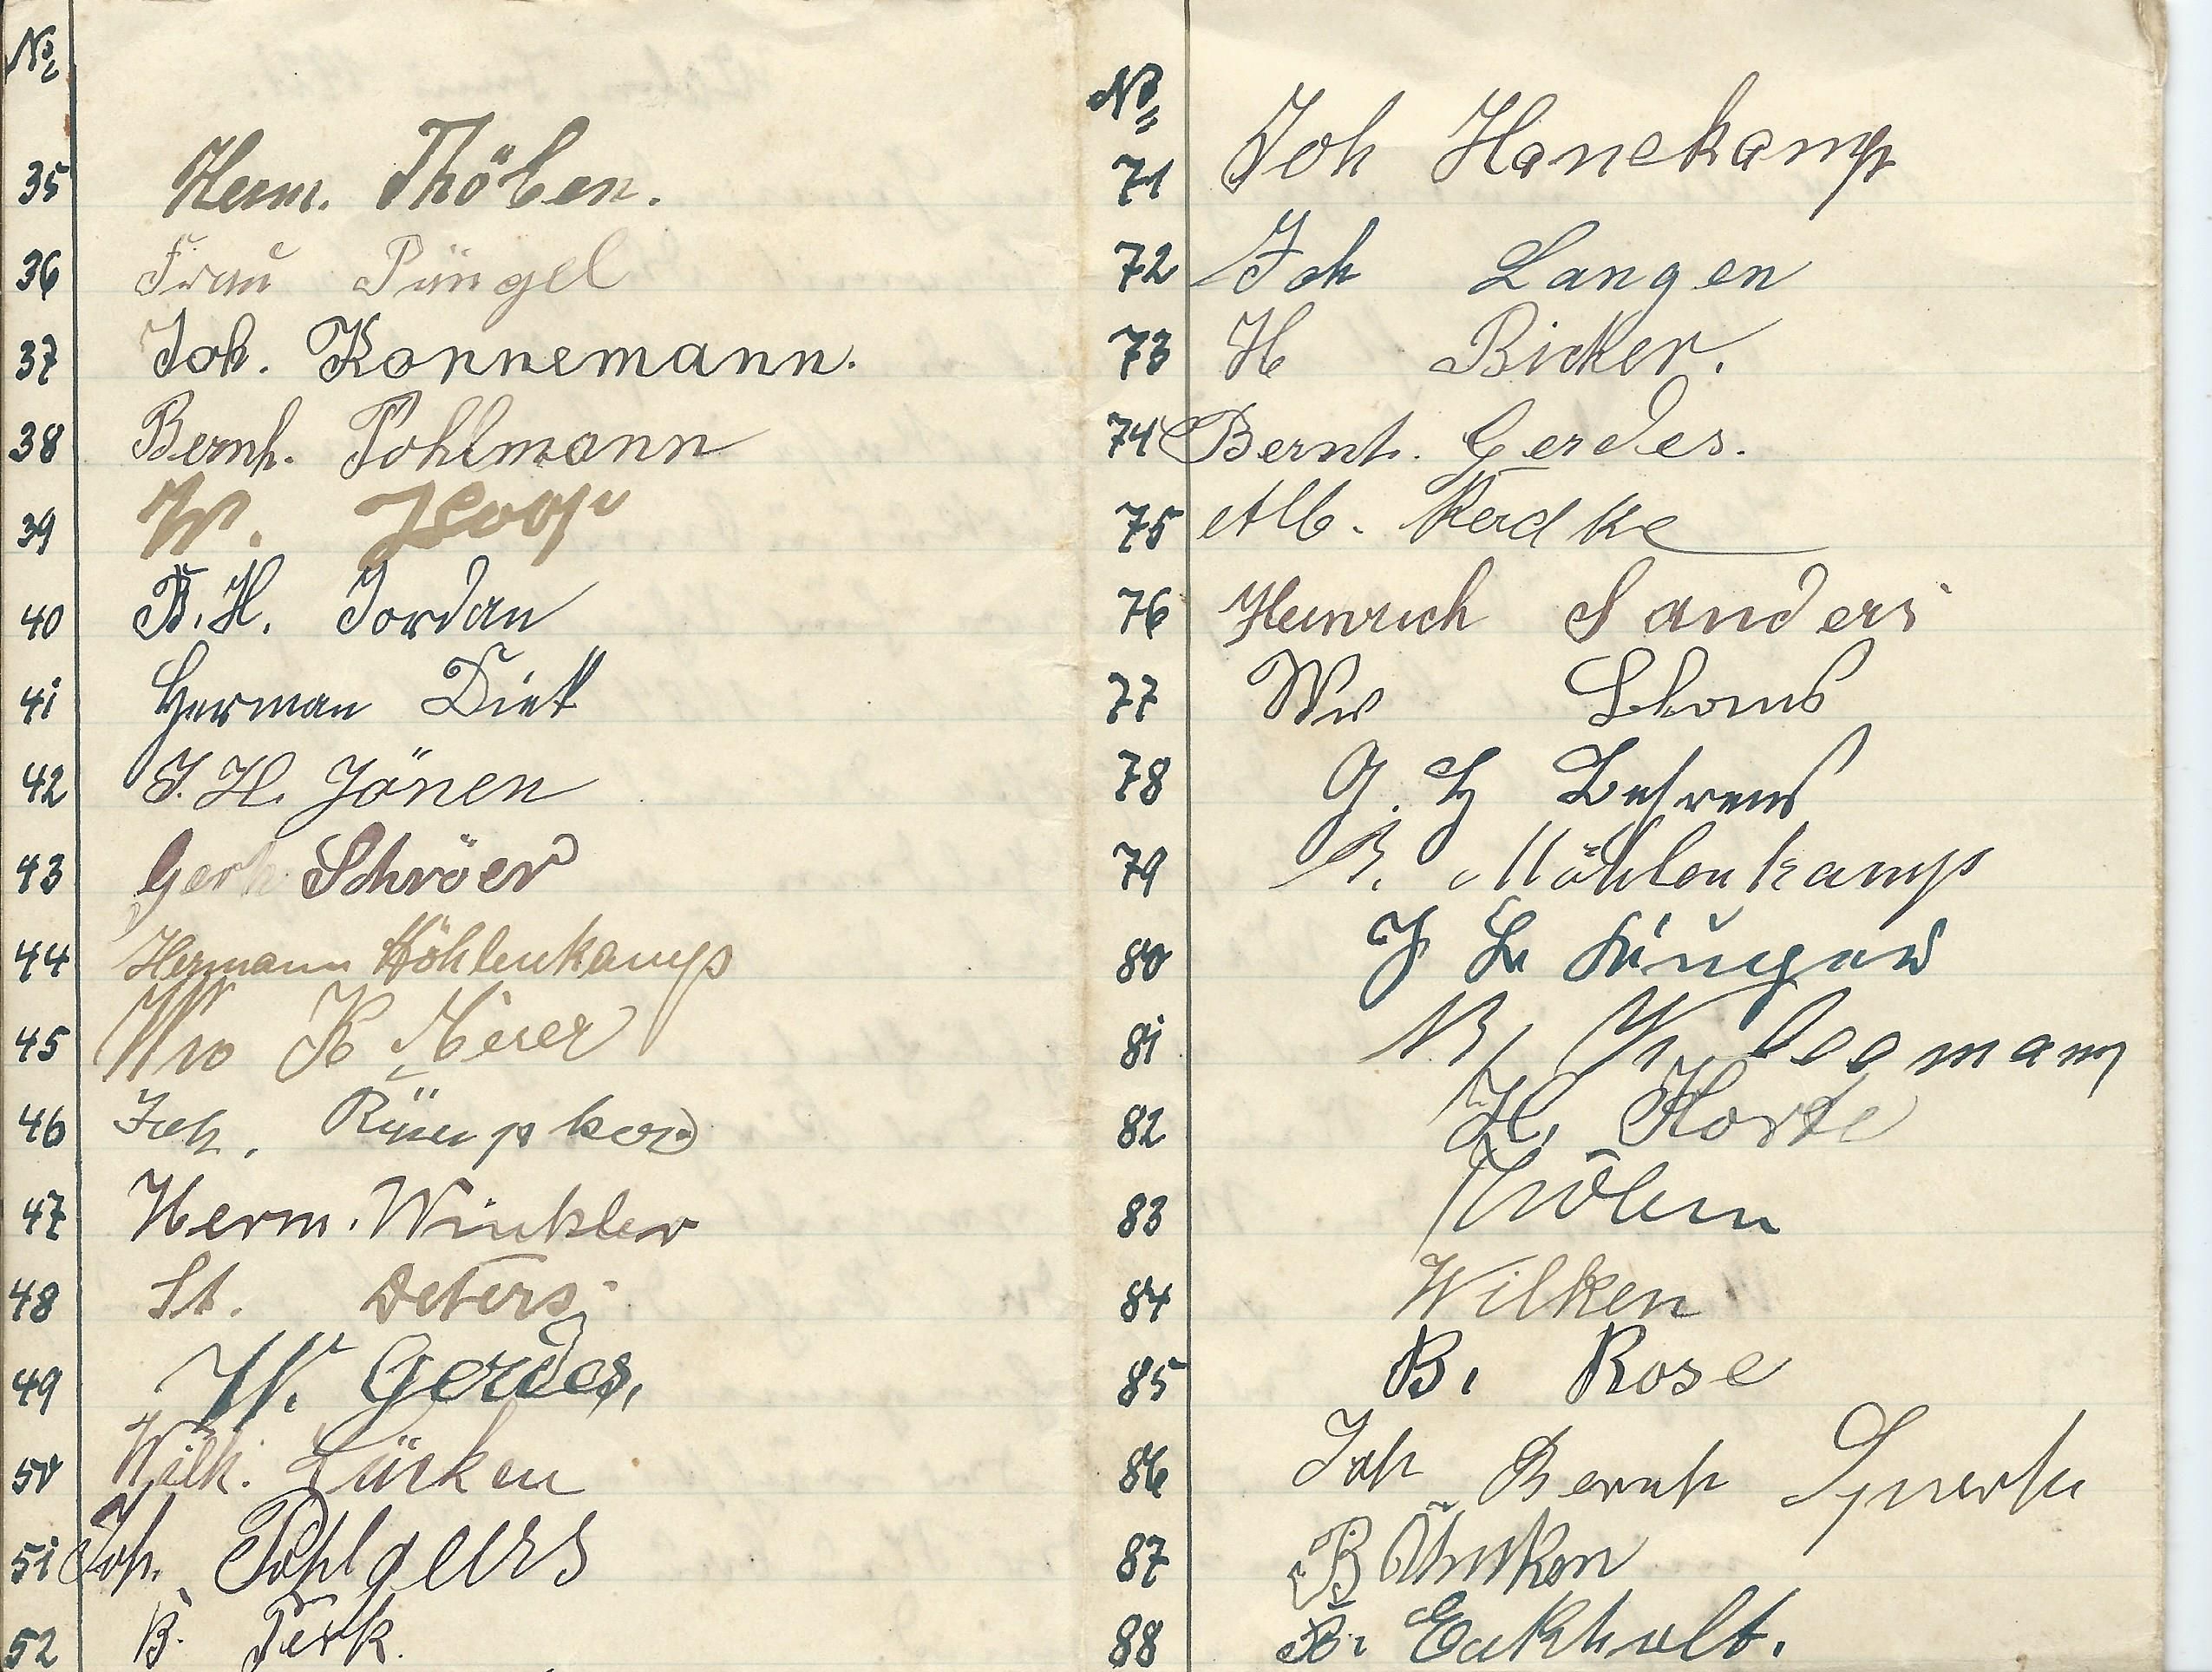 No
35 Herm. Thöben.
36 Frau Püngel
37 Joh. Konnemann.
38 Bernh. Pohlmann
39 W. Hoop
40 B. H. Jordan
41 Herman Diek
42 J. H. Jänen
43 Gerh Schröer
44 Hermann Höhlenkamp
45 Ww K Meier
46 Joh.
47 Herm. Winkler
48 St. Deters
49 W. Gerdes.
50 Wilh. Lücken
51 Joh. Pohlgeers
52 B. Terk.
No
71 Joh Hanekamp
72 Joh Langen
73 H Bicker.
74 Bernh. Gerdes.
75 Alb. Radke
76 Heinrich Sanders
77 Ww
78 G. H Behrens
79 B. Möhlenkamp
80 J
81
82 H. Korte
83
84 Wilken
85 B. Rose
86 Joh Bernh
87 B
88 B. Eckholt.